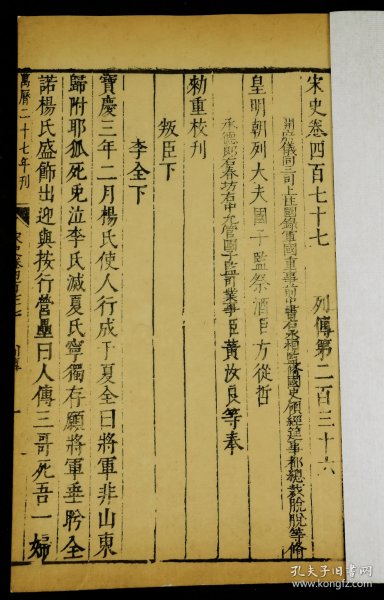 宋史卷四百七十七　列傳第二百三十六
開府儀同三司上柱國錄軍國重事前中書右丞相監修國史領經筵事都總裁脫脫等修
皇明朝列大夫國子監祭酒臣方從哲
承德郎右春坊右中允管國子監司業事臣黃汝良等奉
勑重校刊
叛臣下
李全下
寶慶三年二月楊氏使人行成于夏全曰將軍非山東
歸附耶狐死兔泣李氏滅夏氏寧獨存願將軍垂盻全
諾楊氏盛飾出迎與按行營壘曰人傳三哥死吾一婦
萬曆二十七年刊
孔夫子旧书网